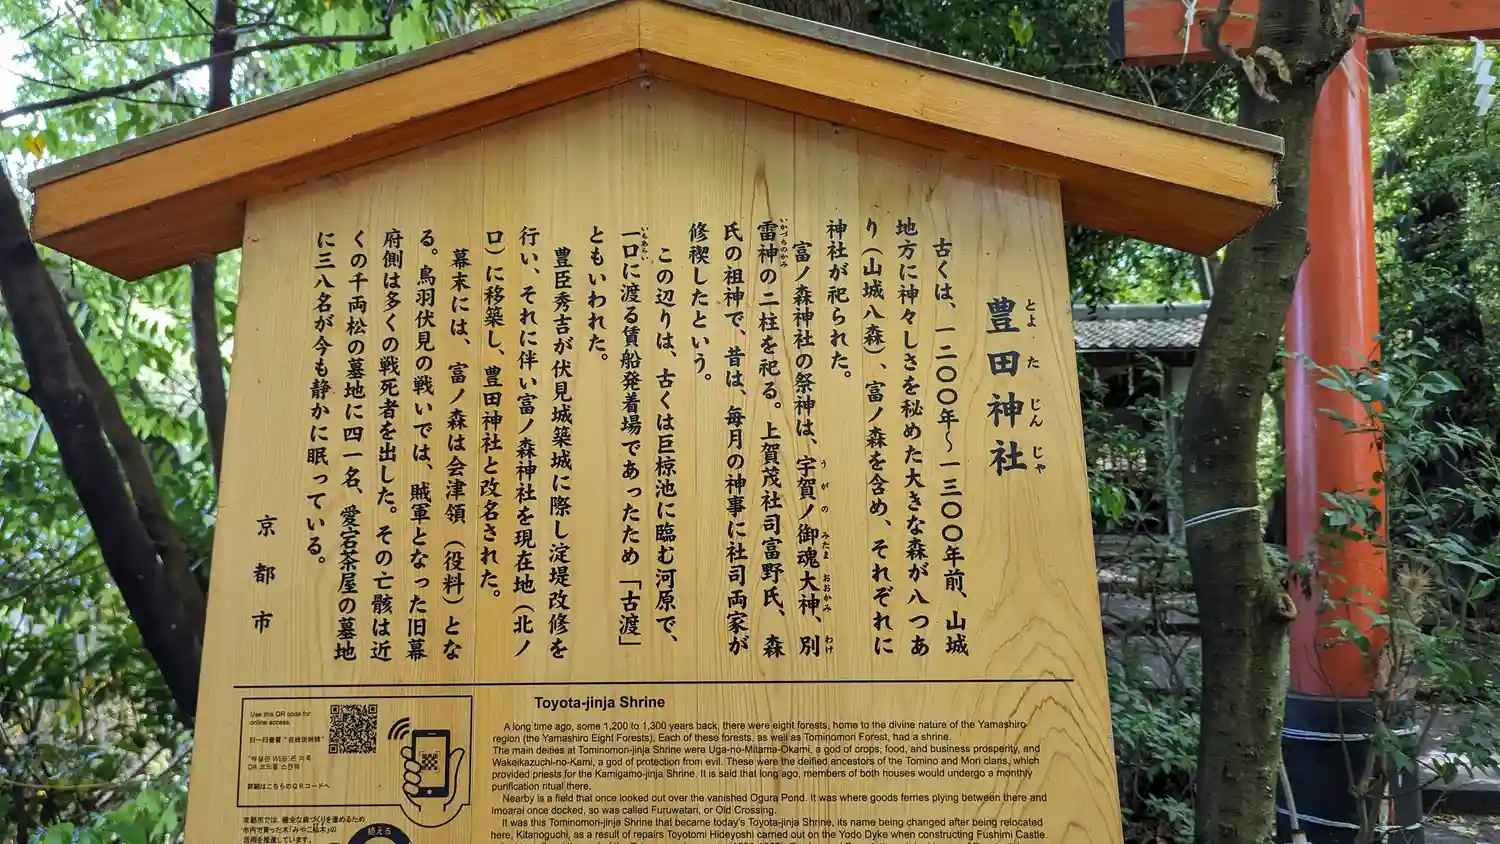 豊田神社
とよ た じん じゃ
古くは、一二〇〇年～一三〇〇年前、山城
地方に神々しさを秘めた大きな森が八つあ
り(山城八森)、富ノ森を含め、それぞれに
神社が祀られた。
富ノ森神社の祭神は、宇賀ノ御魂大神、別
うがの みたま おおかみ わけ
雷神の二柱を祀る。上賀茂社司富野氏、森
いかづちのかみ
氏の祖神で、昔は、毎月の神事に社司両家が
修禊したという。
この辺りは、古くは巨椋池に臨む河原で、
一口に渡る賃船発着場であったため「古渡」
いもあらい
ともいわれた。
豊臣秀吉が伏見城築城に際し淀堤改修を
行い、それに伴い富ノ森神社を現在地(北ノ
口)に移築し、豊田神社と改名された。
幕末には、富ノ森は会津領(役料)とな
る。鳥羽伏見の戦いでは、賊軍となった旧幕
府側は多くの戦死者を出した。その亡骸は近
くの千両松の墓地に四一名、愛宕茶屋の墓地
に三八名が今も静かに眠っている。
京都市
Use this QR code for
online access.
扫一扫查看"在线说明牌"
"해설판 WEB"은 이쪽
QR 코드를 스캔해
詳細はこちらのQRコードへ
京都市では、健全な森づくりを進めるため
市内で育った木「みやこ杣木」の
活用を推進しています。
植える
Toyota-jinja Shrine
A long time ago, some 1,200 to 1,300 years back, there were eight forests, home to the divine nature of the Yamashiro
region (the Yamashiro Eight Forests). Each of these forests, as well as Tominomori Forest, had a shrine.
The main deities at Tominomori-jinja Shrine were Uga-no-Mitama-Okami, a god of crops, food, and business prosperity, and
Wakeikazuchi-no-Kami, a god of protection from evil. These were the deified ancestors of the Tomino and Mori clans, which
provided priests for the Kamigamo-jinja Shrine. It is said that long ago, members of both houses would undergo a monthly
purification ritual there.
Nearby is a field that once looked out over the vanished Ogura Pond. It was where goods ferries plying between there and
Imoarai once docked, so was called Furuwatari, or Old Crossing.
It was this Tominomori-jinja Shrine that became today's Toyota-jinja Shrine, its name being changed after being relocated
here, Kitanoguchi, as a result of repairs Toyotomi Hideyoshi carried out on the Yodo Dyke when constructing Fushimi Castle.